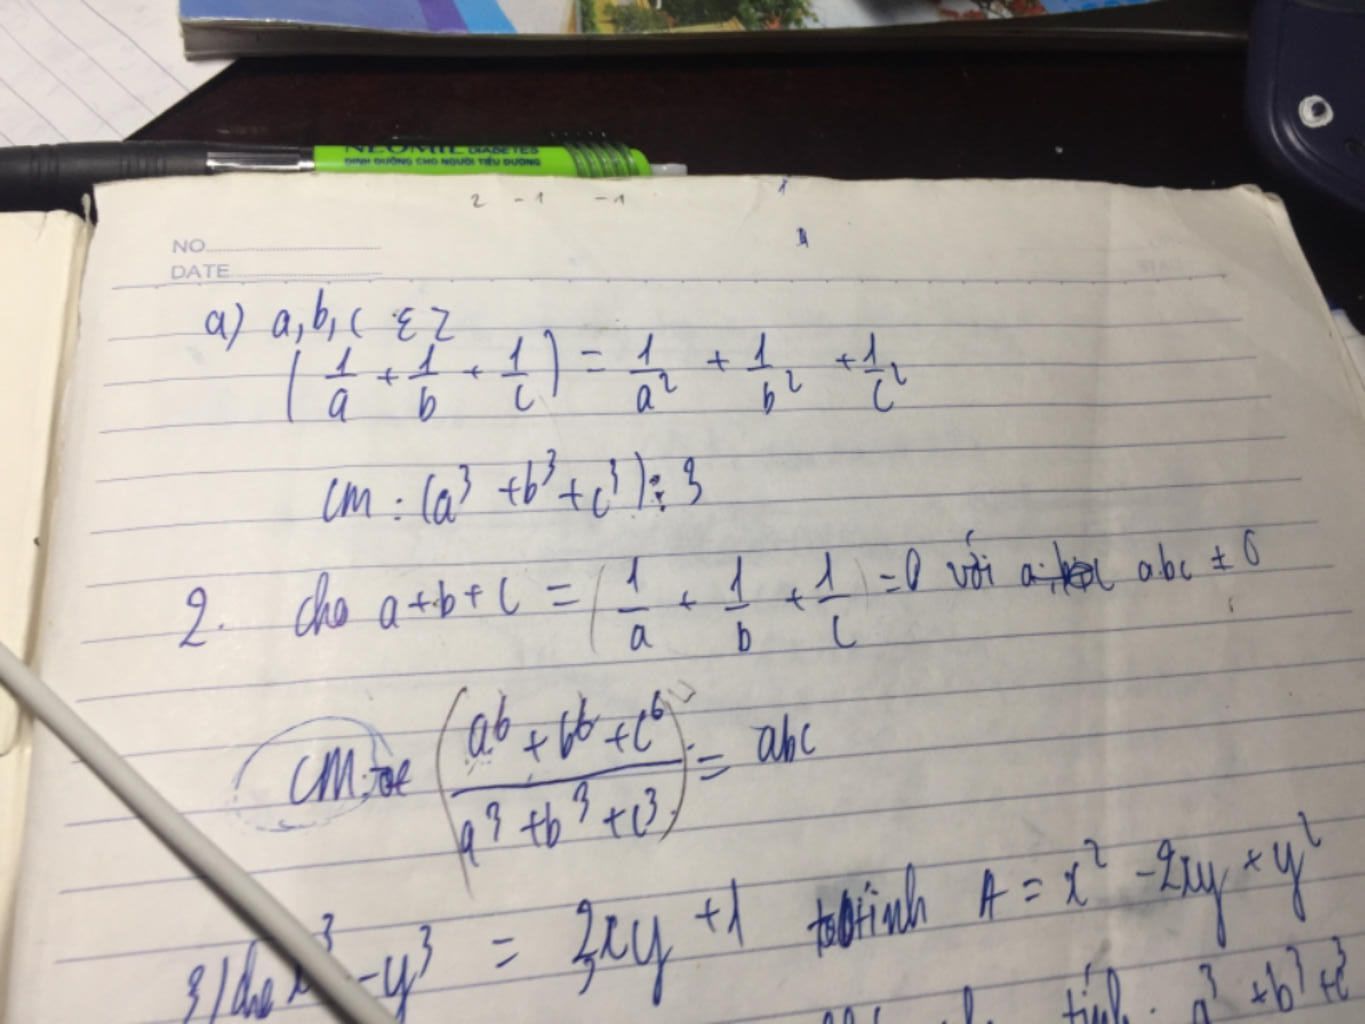 NEOMIL DIABETES
DINH DƯỠNG CHO NGƯỜI TIỂU ĐƯỜNG
2 -1 -1
NO
DATE
a) a, b, c ∈ Z
(1/a + 1/b + 1/c) = 1/a² + 1/b² + 1/c²
CM : (a³ + b³ + c³) ⋮ 3
2. Cho a + b + c = (1/a + 1/b + 1/c) = 0 với abc ≠ 0
CM: (a⁶ + b⁶ + c⁶ / a³ + b³ + c³) = abc
3/ Cho x³ - y³ = 3xy + 1 tính A = x² - 2xy + y²
tính : a³ + b³ + c³